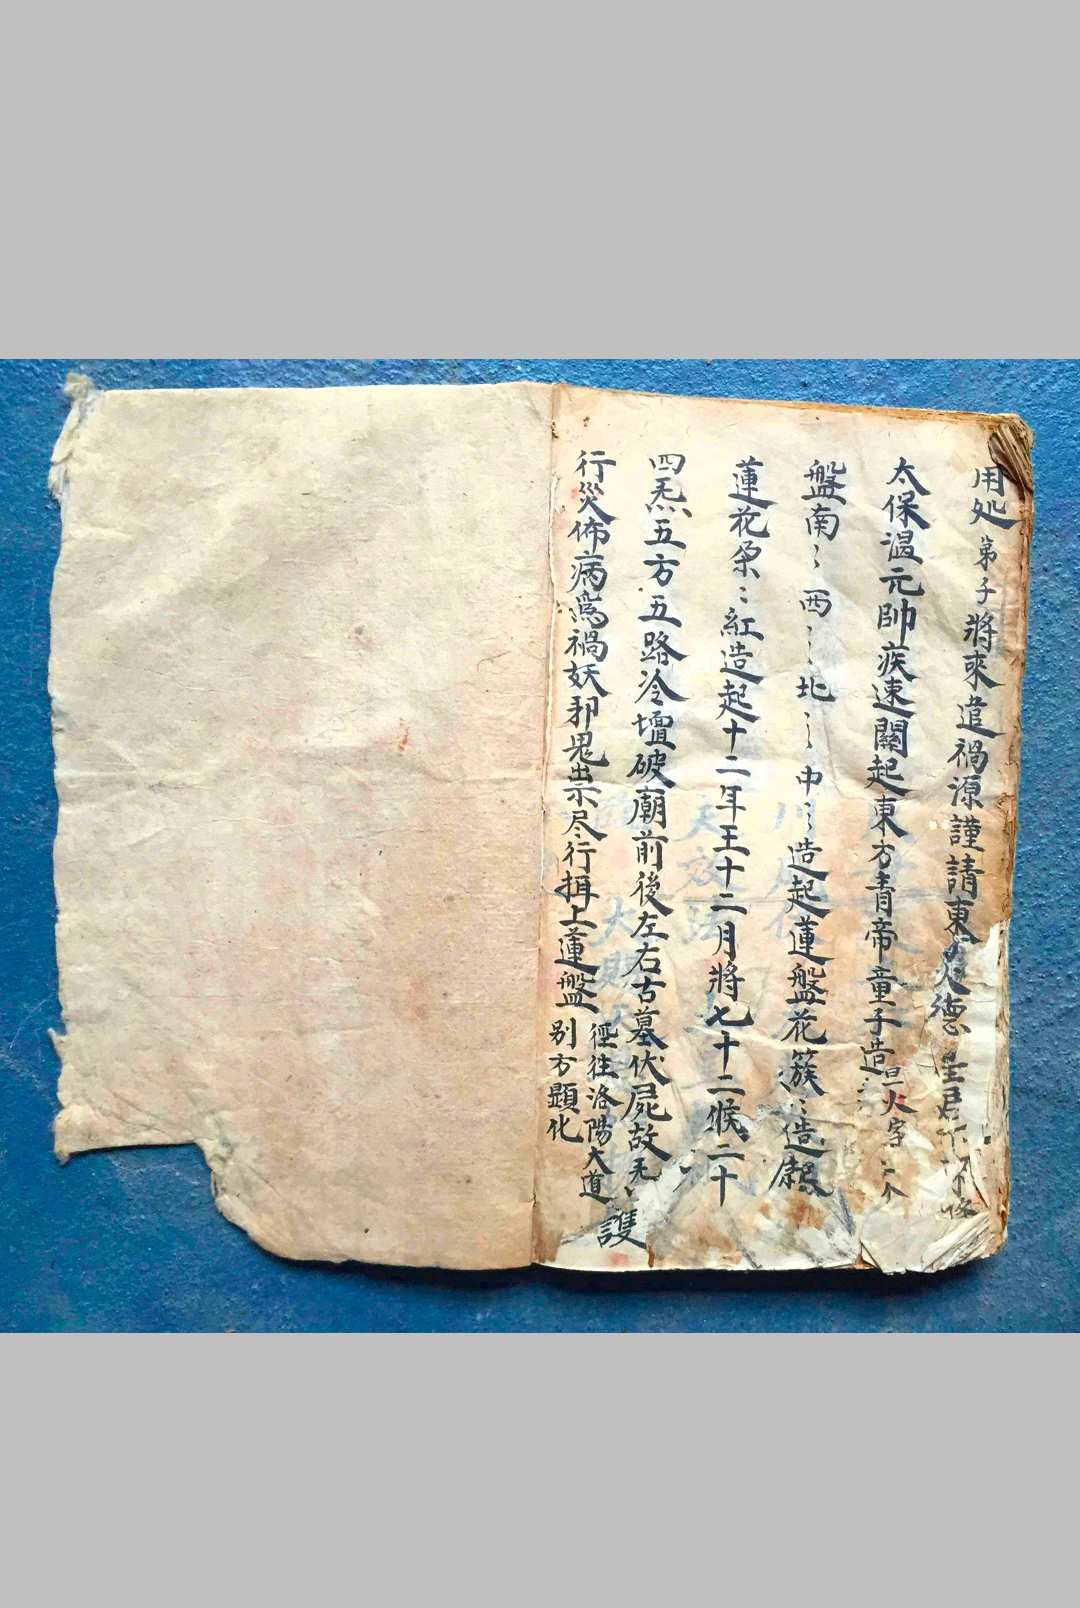 用処弟子將來遣禍源謹請東方火德星君
太保温元帥疾速關起東方青帝童子造火字
盤南〻西〻北〻中〻造起蓮盤花簇〻造
蓮花朶〻紅造起十二年王十二月將七十二候二十
四炁五方五路冷壇破廟前後左右古墓伏屍故炁
行災佈病爲禍妖邪鬼祟尽行揖上蓮盤徑往洛陽大道
別方顕化
護